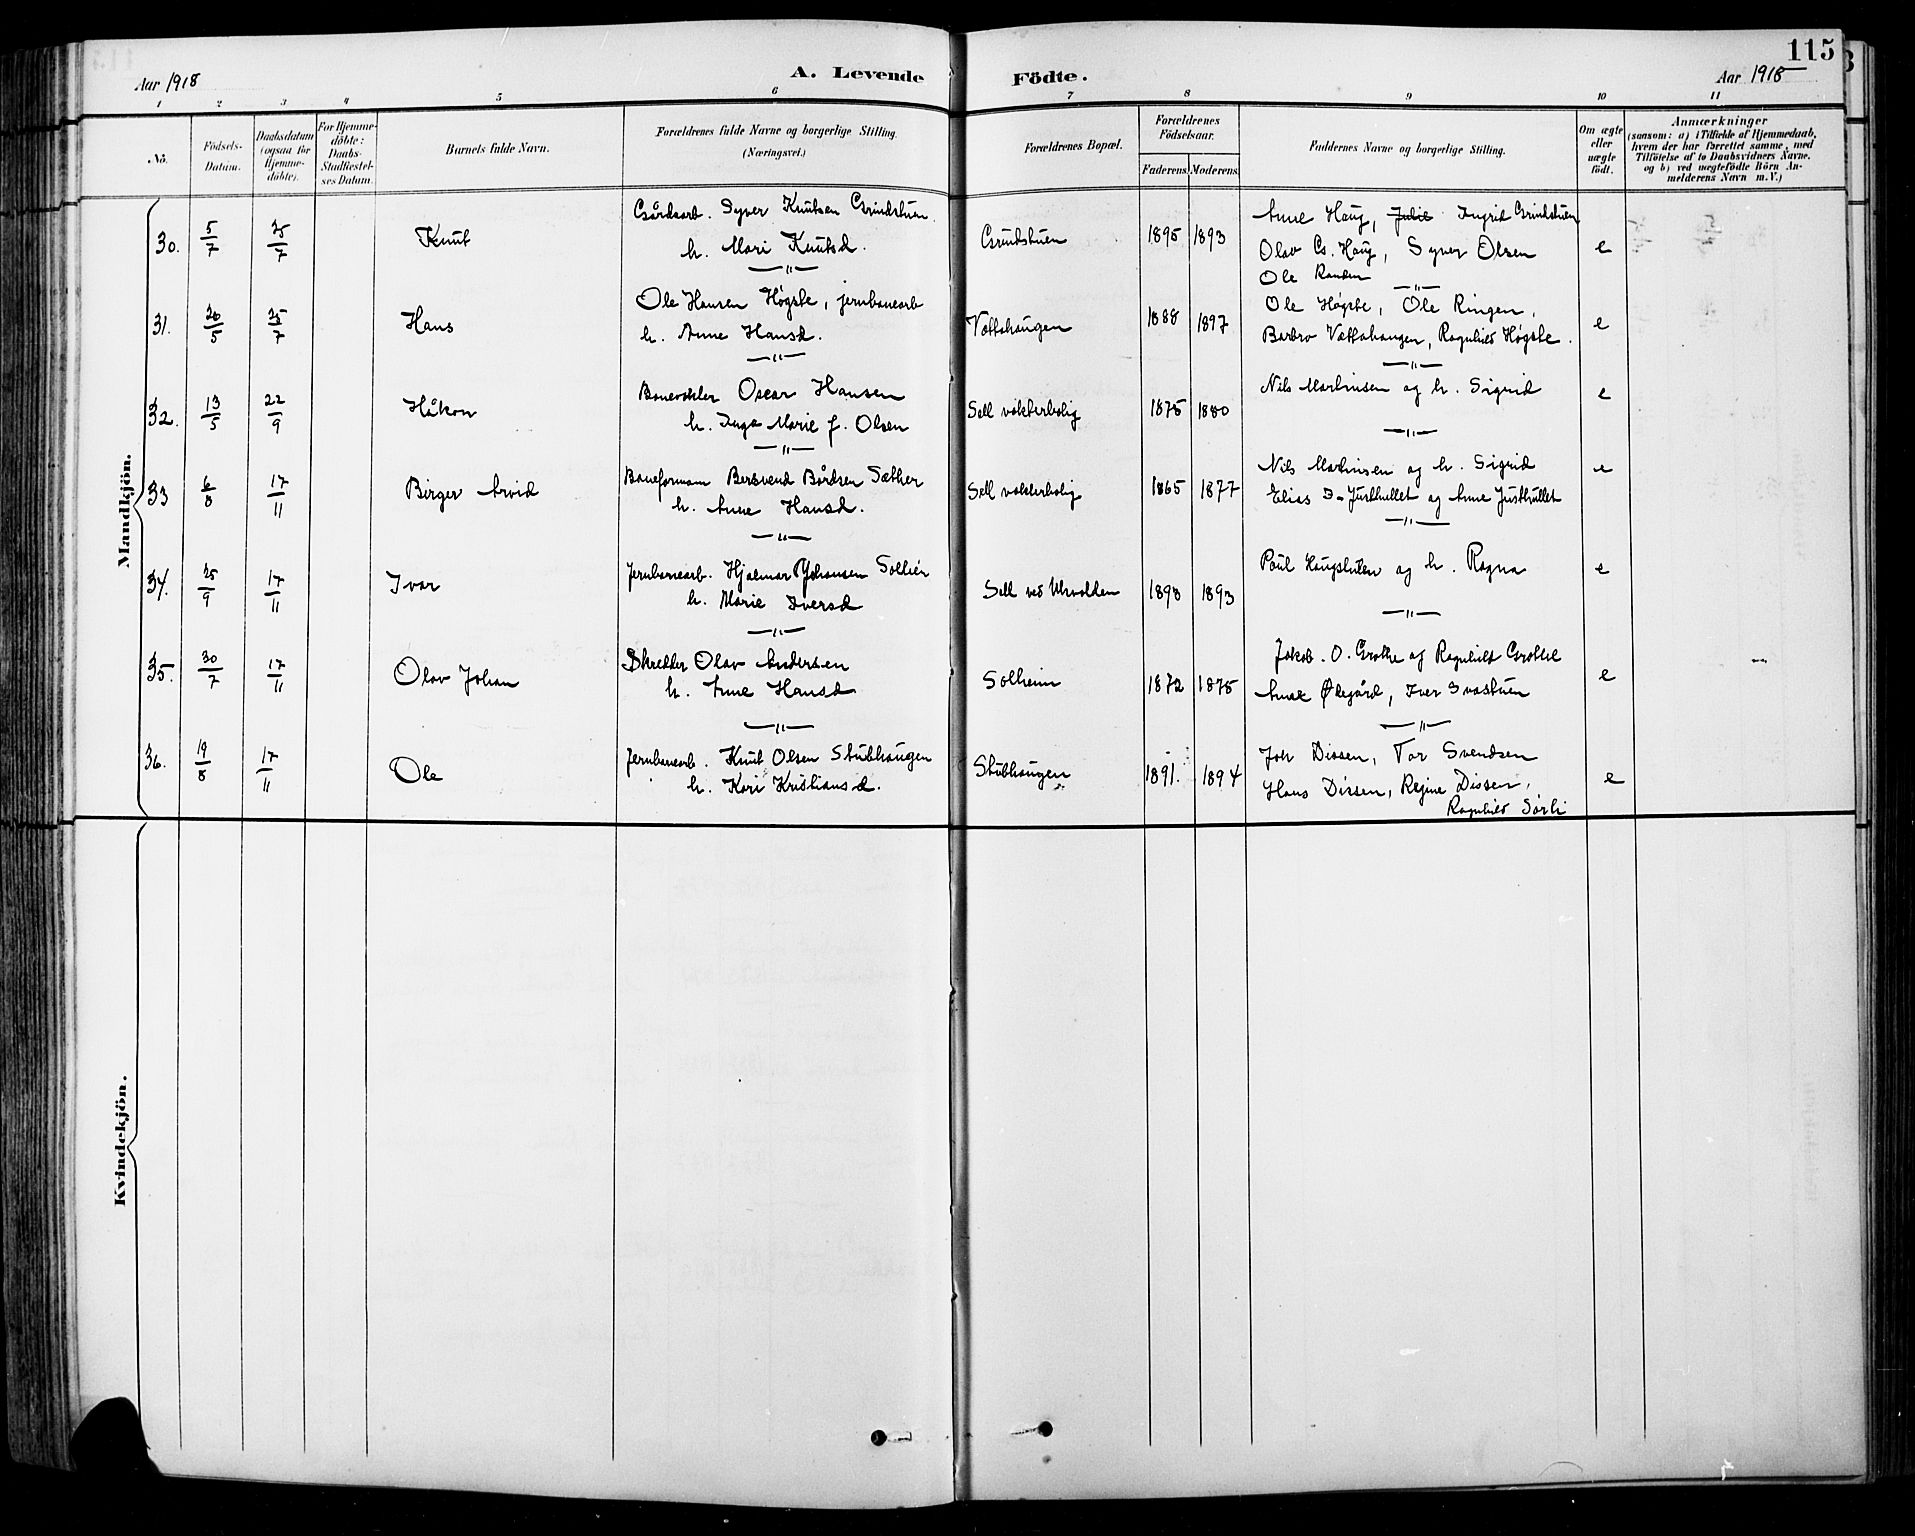 115
Aar 1918
A. Levende Födte.
Aar 1918
1 2 3 4 5 6 7 8 9 10 11
No.
Födsels-Datum.
Daabsdatum (ogsaa för Hjemme-döbte).
For Hjemme-döbte: Daabs-Stadfæstel-ses Datum.
Barnets fulde Navn.
Forældrenes fulde Navne og borgerlige Stilling. (Næringsvei.)
Forældrenes Bopæl.
Forældrenes Födselsaar.
Faderens. Moderens.
Faddernes Navne og borgerlige Stilling.
Om ægte eller uægte födt.
Anmærkninger
(saasom: a) i Tilfælde af Hjemmedaab, hvem der har forrettet samme, med Tilföielse af to Daabsvidners Navne, og b) ved uægtefödte Börn An-melderens Navn m.V.)
Mandkjön.
30. 5/7 25/7 Knut
Gårdsarb. Syver Knutsen Grindstuen
h. Mari Knutsd.
Grindstuen 1895 1893
Anne Haug, Julie Ingrid Grindstuen
Olav G. Haug, Syver Olsen
Ole Randen
e
31. 20/5 25/7 Hans
Ole Hansen Høgste, jernbanearb
h. Anne Hansd.
Vættahaugen 1888 1897
Ole Høgste, Ole Ringen,
Barbro Vættahaugen, Ragnhild Høgste.
e
32. 13/5 22/9 Håkon
Banevokter Oscar Hansen
h. Inga Marie f. Olsen
Sell vokterbolig 1875 1880
Nils Martinsen og h. Sigrid
e
33 6/8 17/11 Birger Arvid
Baneformann Bersvend Bårdsen Sæther
h. Anne Hansd.
Sell vokterbolig 1865 1877
Nils Martinsen og h. Sigrid
Elias Justhullet og Anne Justhullet
e
34. 25/9 17/11 Ivar
Jernbanearb. Hjalmar Johansen Sollien
h. Marie Iversd
Sell ved Ulvolden 1893 1893
Paul Haugstulen og h. Ragna
e
35. 30/7 17/11 Olav Johan
Skredder Olav Andersen
h. Anne Hansd
Solheim 1872 1875
Jakob. O. Grothe og Ragnhild Grothe
Anne Ødegård, Iver Svastuen
e
36. 19/8 17/11 Ole
Jernbanearb. Knut Olsen Stubhaugen
h. Kari Kristiansd.
Stubhaugen 1891. 1894
Joh Dissen, Tor Svendsen
Hans Dissen, Regine Dissen,
Ragnhild Sørli
e
Kvindekjön.